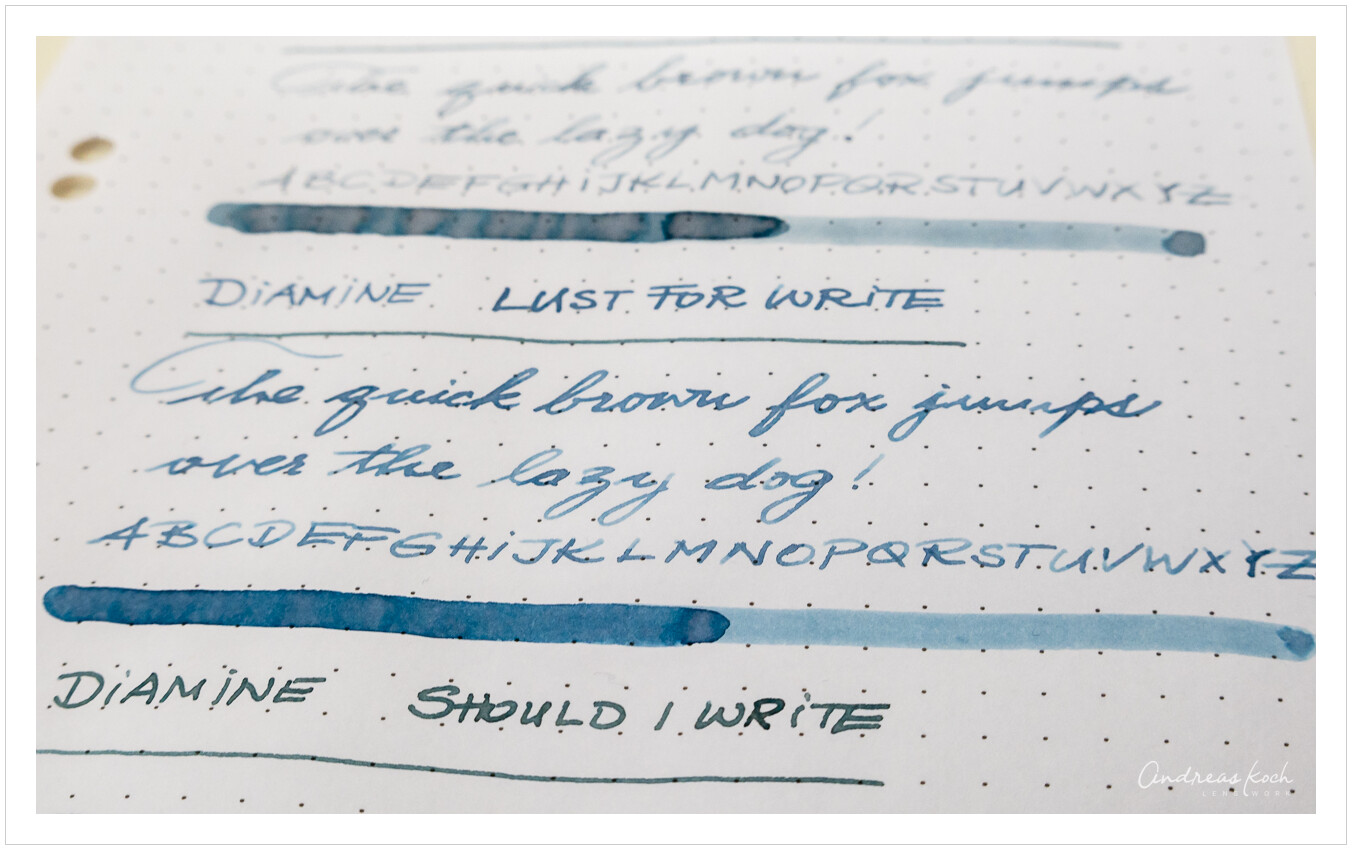 The quick brown fox jumps
over the lazy dog!
ABCDEFGHiJKLMNOPQRSTUVWXYZ
DiAMiNE LUST FOR WRiTE
The quick brown fox jumps
over the lazy dog!
ABCDEFGHiJKLMNOPQRSTUVWXYZ
DiAMiNE SHOULD I WRiTE
Andreas Koch
LENSEWORK